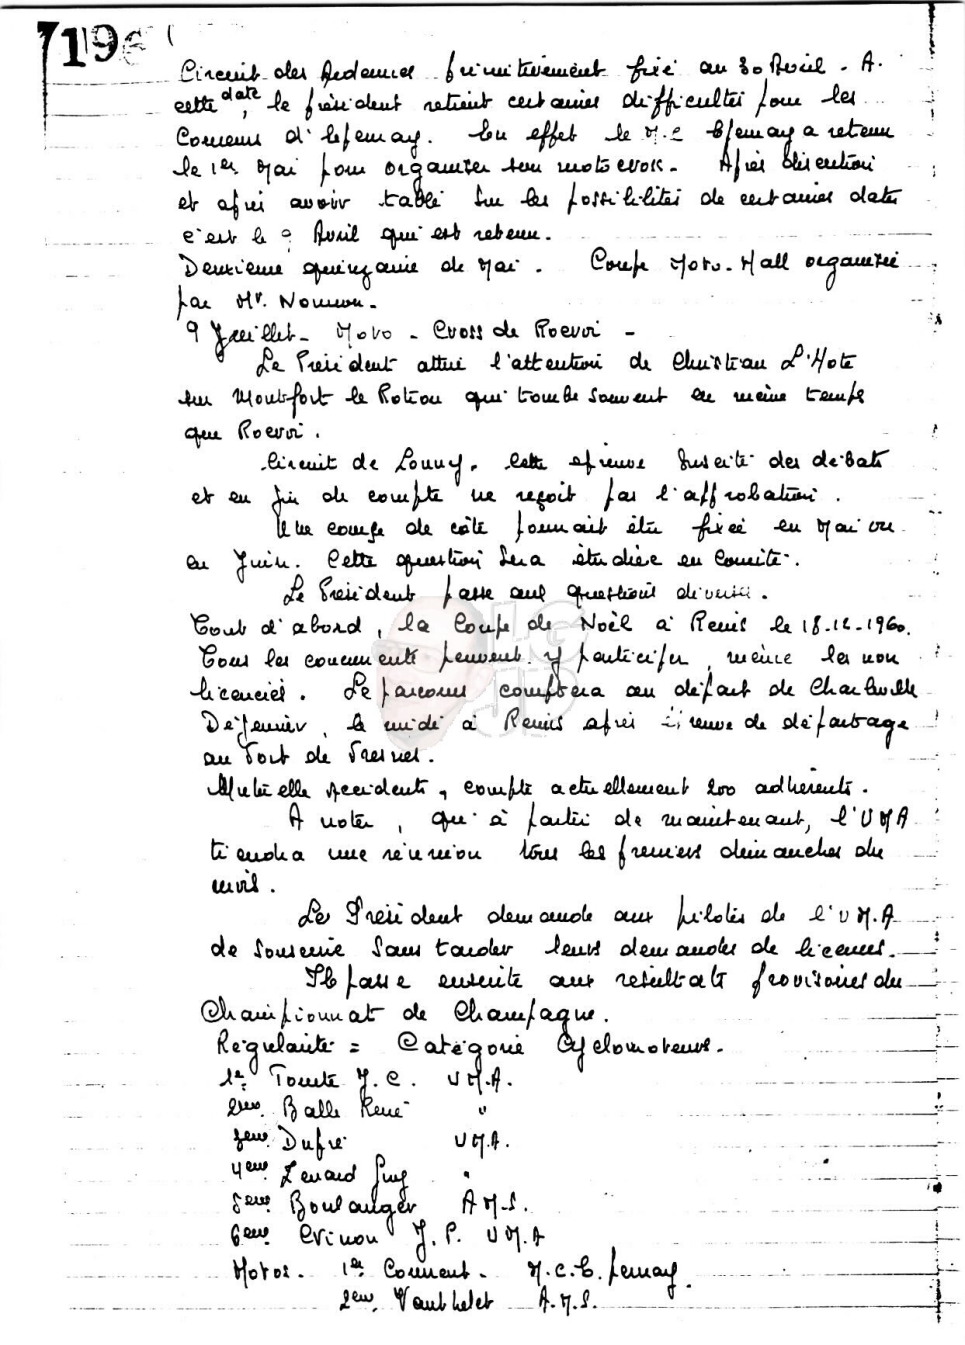 7196
Circuit des Ardennes primitivement fixé au 30 Avril. A
cette date, le président retient certaines difficultés pour les
Coureurs d'Epernay. En effet le M.C Epernay a retenu
le 1er Mai pour organiser son motocross. Après discution
et après avoir tablé sur les possibilités de certaines dates
c'est le 9 Avril qui est retenu.
Deuxième quinzaine de Mai. Coupe Moto-Hall organisée
par Mr.
9 Juillet - Moto-Cross de Rocroi -
Le Président attire l'attention de Christian L'Hote
sur Montfort le Rotrou qui tombe souvent en même temps
que Rocroi.
Circuit de Lonny. Cette épreuve suscite des débats
et en fin de compte ne reçoit pas l'approbation.
Une course de côte pourrait être fixée en Mai ou
en Juin. Cette question sera étudiée en Comité.
Le Président passe aux questions diverses.
Tout d'abord, la Coupe de Noël à Reims le 18-12-1960.
Tous les concurrents peuvent y participer, même les non
licenciés. Le parcours comptera au départ de Charleville
Déjeuner, le midi à Reims après épreuve de départage
au Fort de Fresnes.
Mutuelle Accidents, compte actuellement 200 adhérents.
A noter, qu'à partir de maintenant, l'UMA
tiendra une réunion tous les premiers dimanches du
mois.
Le Président demande aux pilotes de l'UM.A
de souscrire sans tarder leurs demandes de licences.
Il passe ensuite aux résultats provisoires du
Championnat de Champagne.
Régularité = Catégorie Cyclomoteurs.
1er. J.C. UM.A.
2ème. Balle René "
3ème. Dupré UM.A.
4ème. Lenard Guy "
5ème. Boulanger A.M.S.
6ème. Crinon J.P. UM.A
Motos. 1er M.C.Epernay.
2ème. A.M.S.